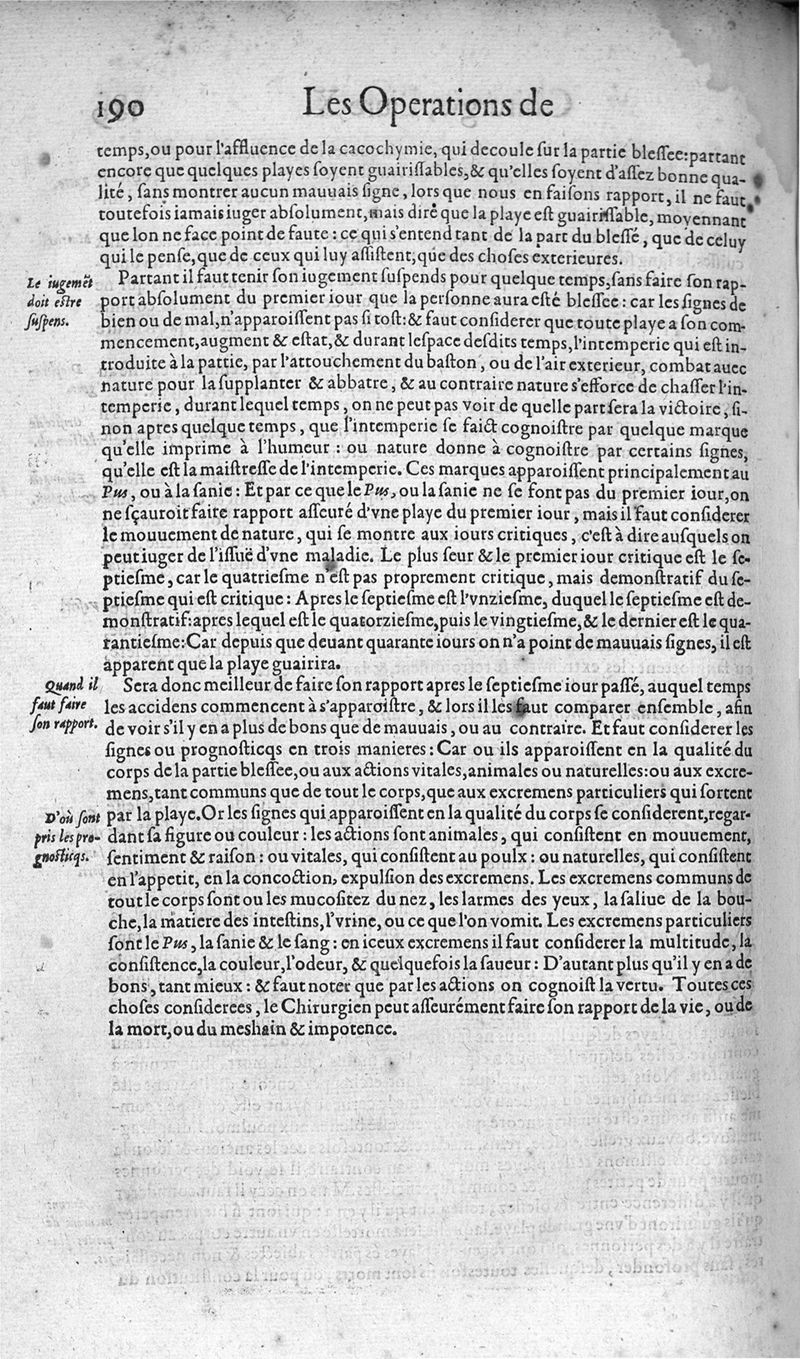 190 Les Operations de
temps,ou pour l'affluence de la cacochymie, qui decoule ſur la partie bleſſee:partant
encore que quelques playes ſoyent guairiſſables,& qu'elles ſoyent d'aſſez bonne qua-
lité, ſans montrer aucun mauuais ſigne, lors que nous en faiſons rapport, il ne faut
toutefois iamais iuger abſolument,mais dire que la playe eſt guairiſſable, moyennant
que lon ne face point de faute : ce qui s'entend tant de la part du bleſſé, que de celuy
qui le penſe,que de ceux qui luy aſſiſtent,que des choſes exterieures.
Le iugemēt
doit eſtre
ſuſpens.
Partant il faut tenir ſon iugement ſuſpends pour quelque temps,ſans faire ſon rap-
port abſolument du premier iour que la perſonne aura eſté bleſſee : car les ſignes de
bien ou de mal,n'apparoiſſent pas ſi toſt:& faut conſiderer que toute playe a ſon com-
mencement,augment & eſtat,& durant leſpace deſdits temps,l'intemperie qui eſt in-
troduite à la pattie, par l'attouchement du baſton, ou de l'air exterieur, combat auec
nature pour la ſupplanter & abbatre, & au contraire nature s'efforce de chaſſer l'in-
temperie, durant lequel temps, on ne peut pas voir de quelle part ſera la victoire, ſi-
non apres quelque temps, que l'intemperie ſe faict cognoiſtre par quelque marque
qu'elle imprime à l'humeur : ou nature donne à cognoiſtre par certains ſignes,
qu'elle eſt la maiſtreſſe de l'intemperie. Ces marques apparoiſſent principalement au
Pus, ou à la ſanie : Et par ce que le Pus, ou la ſanie ne ſe font pas du premier iour,on
ne ſçauroit faire rapport aſſeuré d'vne playe du premier iour, mais il faut conſiderer
le mouuement de nature, qui ſe montre aux iours critiques, c'eſt à dire auſquels on
peut iuger de l'iſſuë d'vne maladie. Le plus ſeur & le premier iour critique eſt le ſe-
ptieſme, car le quatrieſme n'eſt pas proprement critique, mais demonſtratif du ſe-
ptieſme qui eſt critique : Apres le ſeptieſme eſt l'vnzieſme, duquel le ſeptieſme eſt de-
monſtratif:apres lequel eſt le quatorzieſme,puis le vingtieſme,& le dernier eſt le qua-
rantieſme:Car depuis que deuant quarante iours on n'a point de mauuais ſignes, il eſt
apparent que la playe guairira.
Quand il
faut faire
ſon rapport.
Sera donc meilleur de faire ſon rapport apres le ſeptieſme iour paſſé, auquel temps
les accidens commencent à s'apparoiſtre, & lors il les faut comparer enſemble, afin
de voir s'il y en a plus de bons que de mauuais, ou au contraire. Et faut conſiderer les
ſignes ou prognoſticqs en trois manieres : Car ou ils apparoiſſent en la qualité du
corps de la partie bleſſee,ou aux actions vitales,animales ou naturelles:ou aux excre-
mens,tant communs que de tout le corps,que aux excremens particuliers qui ſortent
D'où ſont
pris les pro-
gnoſticqs.
par la playe.Or les ſignes qui apparoiſſent en la qualité du corps ſe conſiderent,regar-
dant ſa figure ou couleur : les actions ſont animales, qui conſiſtent en mouuement,
ſentiment & raiſon : ou vitales, qui conſiſtent au poulx : ou naturelles, qui conſiſtent
en l'appetit, en la concoction, expulſion des excremens. Les excremens communs de
tout le corps ſont ou les mucoſitez du nez, les larmes des yeux, la ſaliue de la bou-
che,la matiere des inteſtins,l'vrine, ou ce que l'on vomit. Les excremens particuliers
ſont le Pus, la ſanie & le ſang : en iceux excremens il faut conſiderer la multitude, la
conſiſtence,la couleur,l'odeur, & quelquefois la ſaueur : D'autant plus qu'il y en a de
bons, tant mieux : & faut noter que par les actions on cognoiſt la vertu. Toutes ces
choſes conſiderees, le Chirurgien peut aſſeurément faire ſon rapport de la vie, ou de
la mort,ou du meshain & impotence.